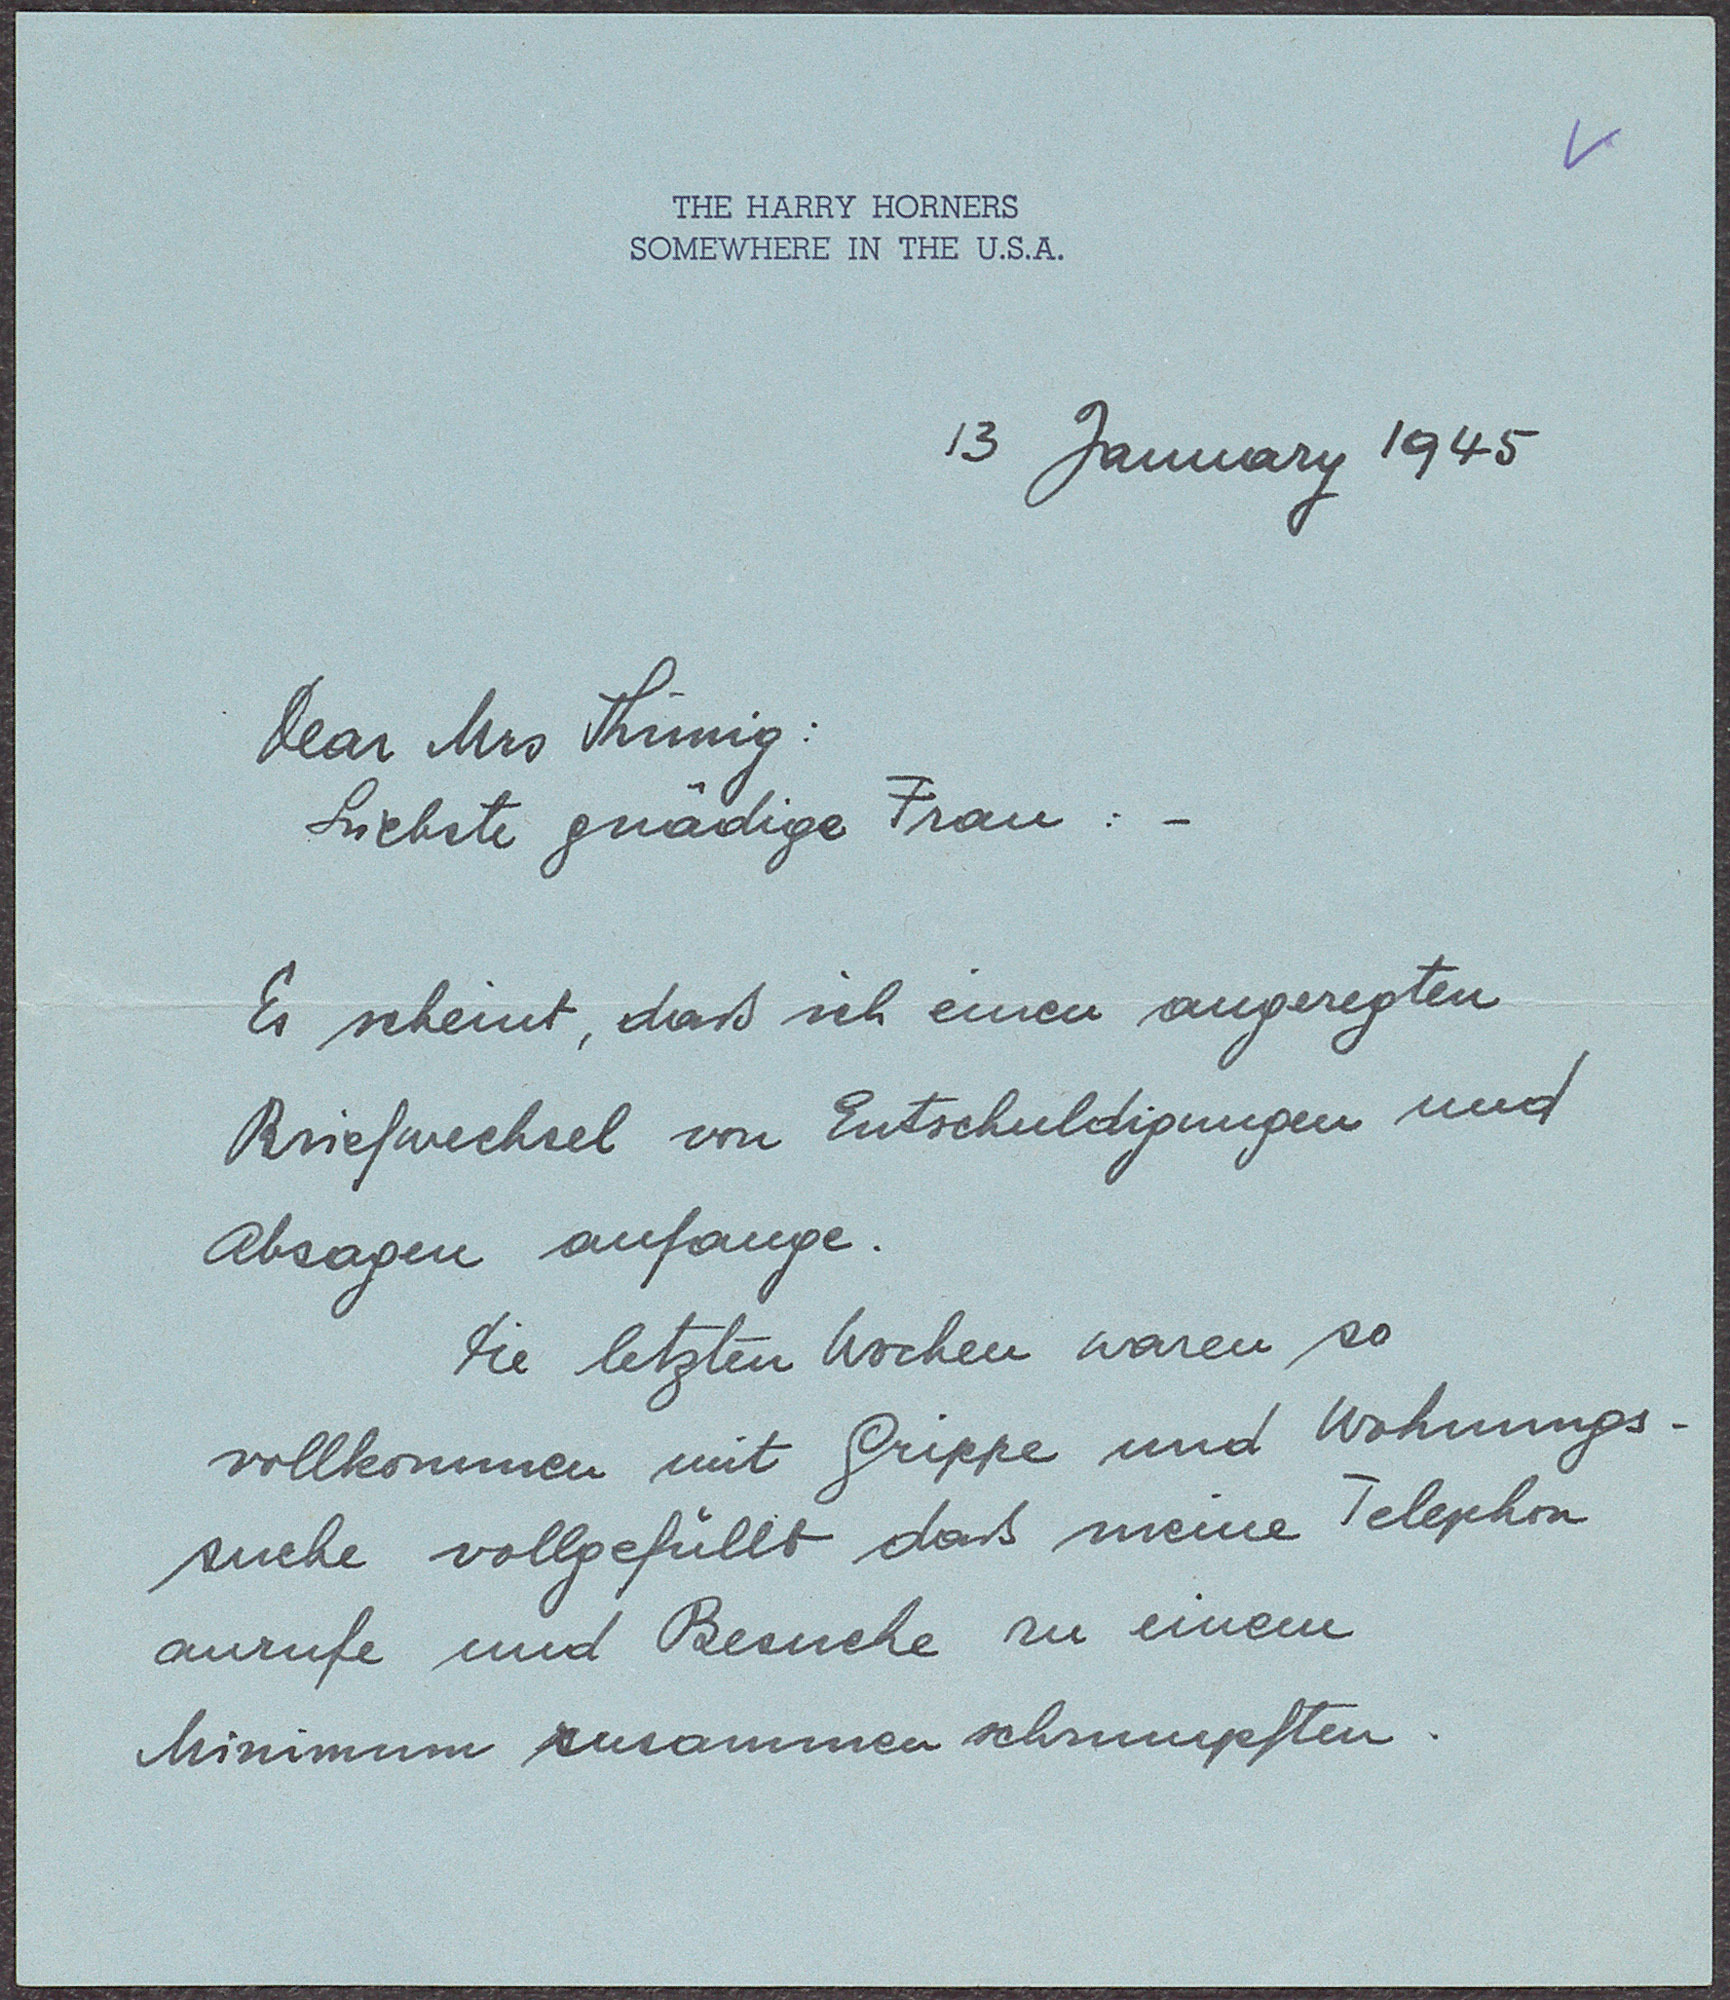 THE HARRY HORNERS
SOMEWHERE IN THE U.S.A.
13 January 1945
Dear Mrs Thimig:
Liebste gnädige Frau : -
Es scheint, daß ich einen angeregten
Briefwechsel von Entschuldigungen und
Absagen anfange.
Die letzten Wochen waren so
vollkommen mit Grippe und Wohnungs-
suche vollgefüllt daß meine Telephon
anrufe und Besuche zu einem
Minimum zusammen schrumpften.